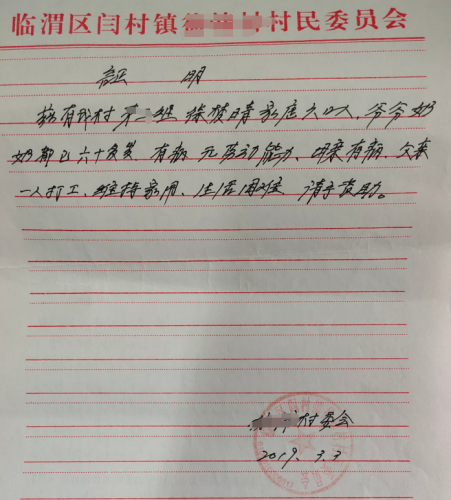 临渭区闫村镇 村民委员会
证 明
兹有我村第二组 徐梦晴 家庭六口人, 爷爷奶
奶都已六十多岁 有病 无劳动能力、母亲有病、父亲
一人打工、维持家用、生活困难 请予资助。
村委会
2019. 3.3